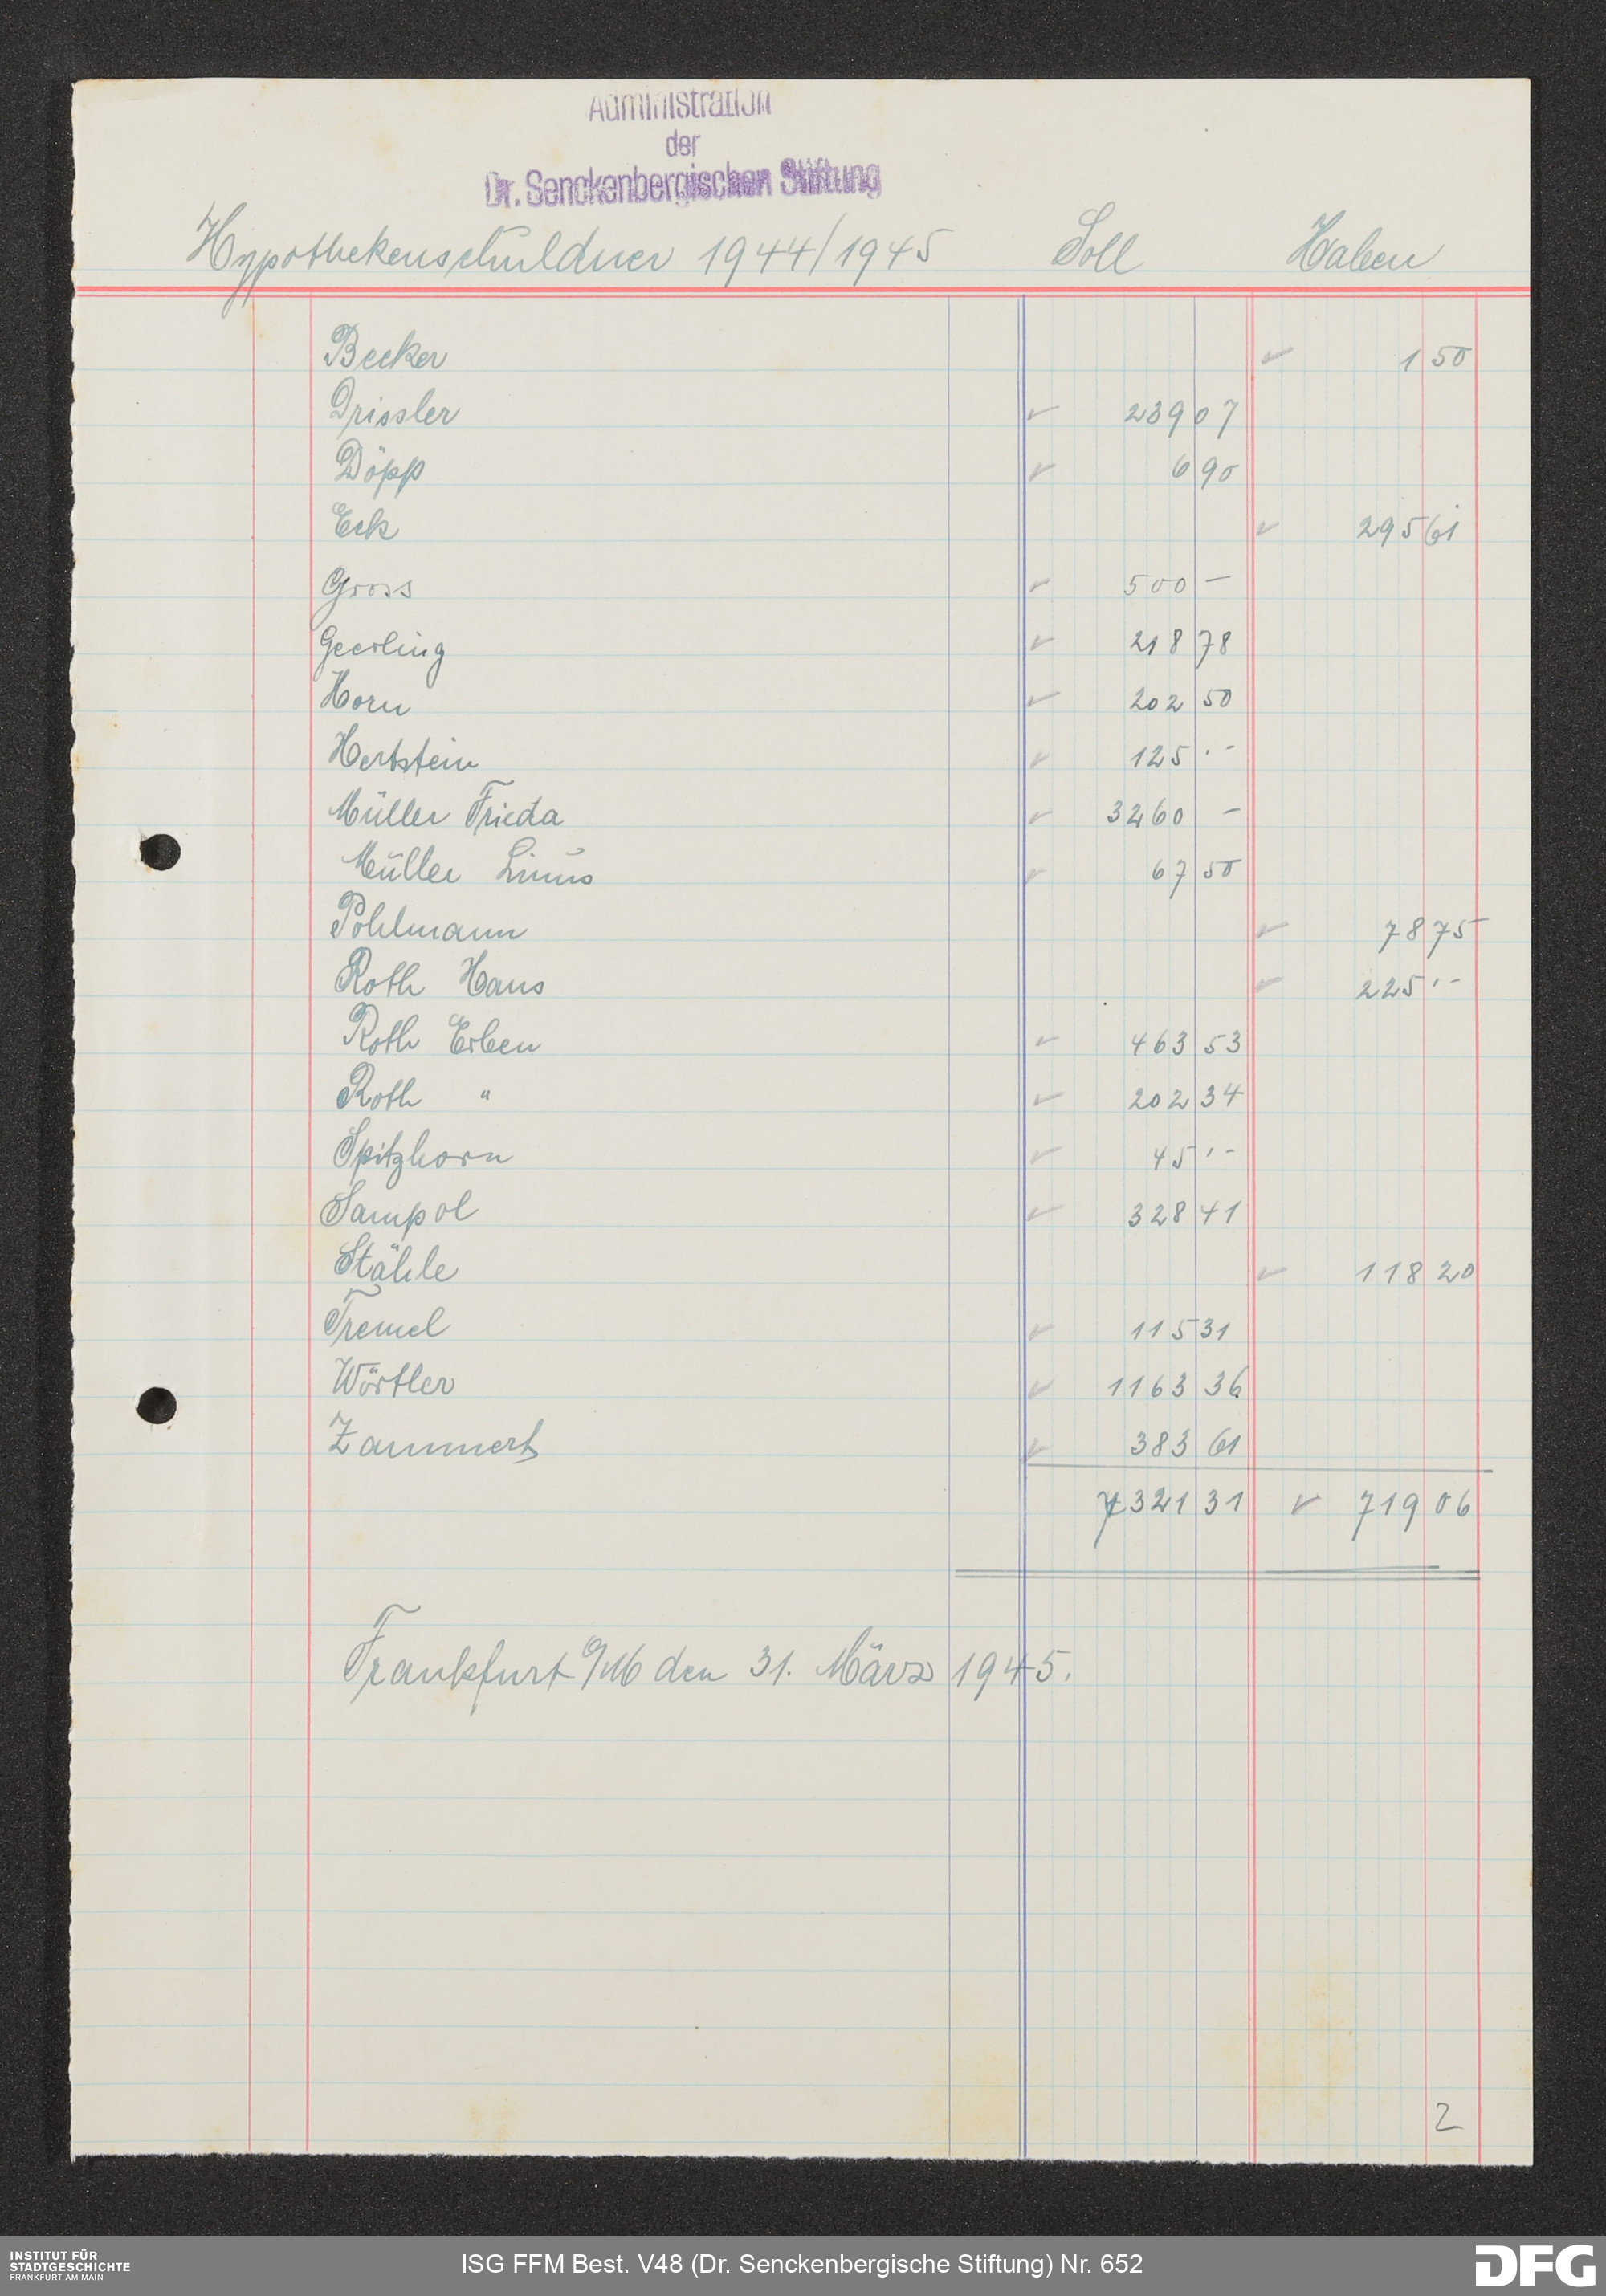 Administration
der
Dr. Senckenbergischen Stiftung
Hypothekenschuldner 1944/1945 Soll Haben
Becker ✓ 1 50
Drissler ✓ 239 07
Döpp ✓ 6 90
Eck ✓ 295 61
Gross ✓ 500 –
Geerling ✓ 218 78
Horn ✓ 202 50
Hertstein ✓ 125 . –
Müller Frieda ✓ 3260 –
Müller Linus ✓ 67 50
Pohlmann ✓ 78 75
Roth Hans ✓ 225 . –
Roth Erben ✓ 463 53
Roth " ✓ 202 34
Spitzhorn ✓ 45 . –
Sampol ✓ 328 41
Stähle ✓ 118 20
Tremel ✓ 115 31
Wörtler ✓ 1163 36
Zammert ✓ 383 61
7321 31 ✓ 719 06
Frankfurt a/M den 31. März 1945.
2
INSTITUT FÜR
STADTGESCHICHTE
FRANKFURT AM MAIN
ISG FFM Best. V48 (Dr. Senckenbergische Stiftung) Nr. 652
DFG